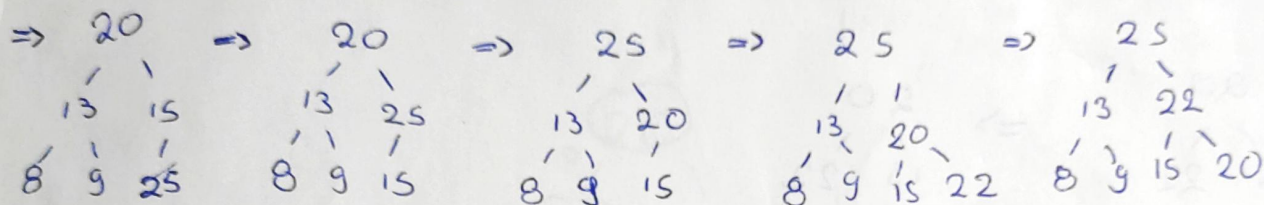 ⇒ 20 ⇒ 20 ⇒ 25 ⇒ 25 ⇒ 25
13 15 13 25 13 20 13 20 13 22
8 9 25 8 9 15 8 9 15 8 9 15 22 8 9 15 20